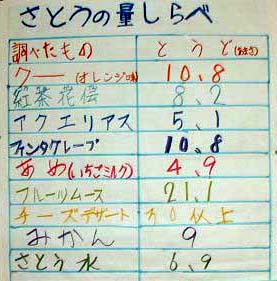 さとうの量しらべ
調べたもの とうど(あまさ)
クー(オレンジ味) 10.8
紅茶花伝 8.2
アクエリアス 5.1
ファンタグレープ 10.8
あめ(いちごミルク) 4.9
フルーツムース 21.1
チーズデザート 30以上
みかん 9
さとう水 6.9